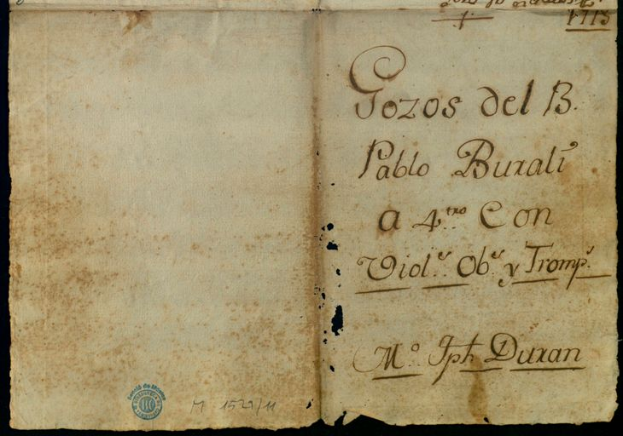 1773
Gozos del B.
Pablo Burali
a 4.tro Con
Viol.s Ob.s y Tromp.s
M.o Jph Duran
M 1529/11